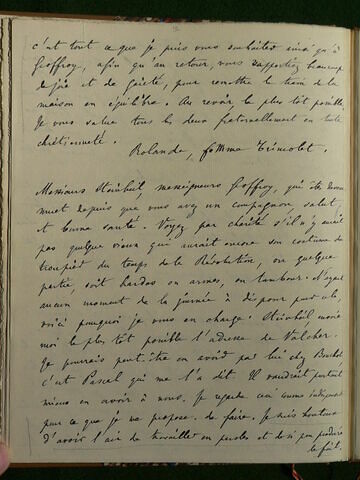 c'est tout ce que je puis vous souhaiter ainsi qu'à
Geoffroy, afin qu'au retour, vous rapportiez beaucoup
de joie et de gaieté, pour remettre le train de la
maison en équilibre. Au revoir le plus tôt possible
Je vous salue tous les deux fraternellement en toute
chrétienneté.
Rolande, femme Trimolet.
Messieurs Steinheil, messeigneurs Geoffroy, qui êtes devenu
muet depuis que vous avez un compagnon, salut,
et bonne santé. Voyez par charité s'il n'y aurait
pas quelque voisin qui aurait encore son costume de
troupier du temps de la Révolution, ou quelque
partie, soit hardes ou armes, ou tambour. N'ayant
aucun moment de la journée à disposer pour cela,
voici pourquoi je vous en charge. Steinheil envoie
moi le plus tôt possible l'adresse de Valcher.
Je pourrais peut-être en avoir par lui chez
c'est Pascal qui me l'a dit. Il vaudrait pourtant
mieux en avoir à nous. Je regarde ceci comme indispensable
pour ce que je me propose de faire. Je suis honteux
d'avoir l'air de travailler en paroles et de si peu produire
le fait.